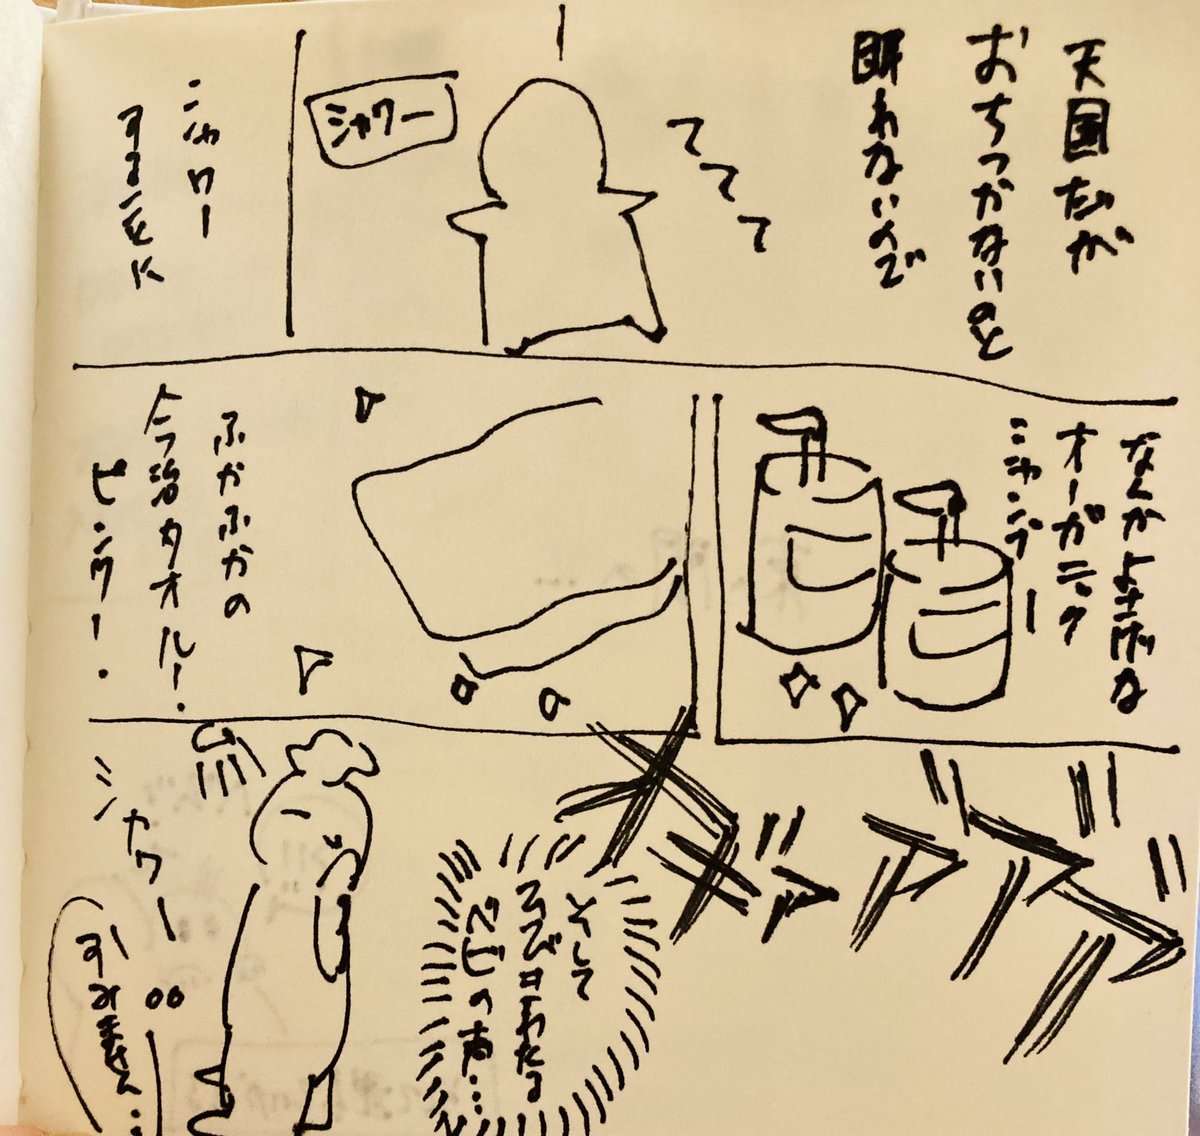 天国だが
おちつかないのと
眠れないので
ててて
シャワー
シャワー
することに
なんかよさげな
オーガニック
シャンプー
ふかふかの
今治タオル!
ピンク!
そして
わたる
ベビの声…
シャワー
すみません…